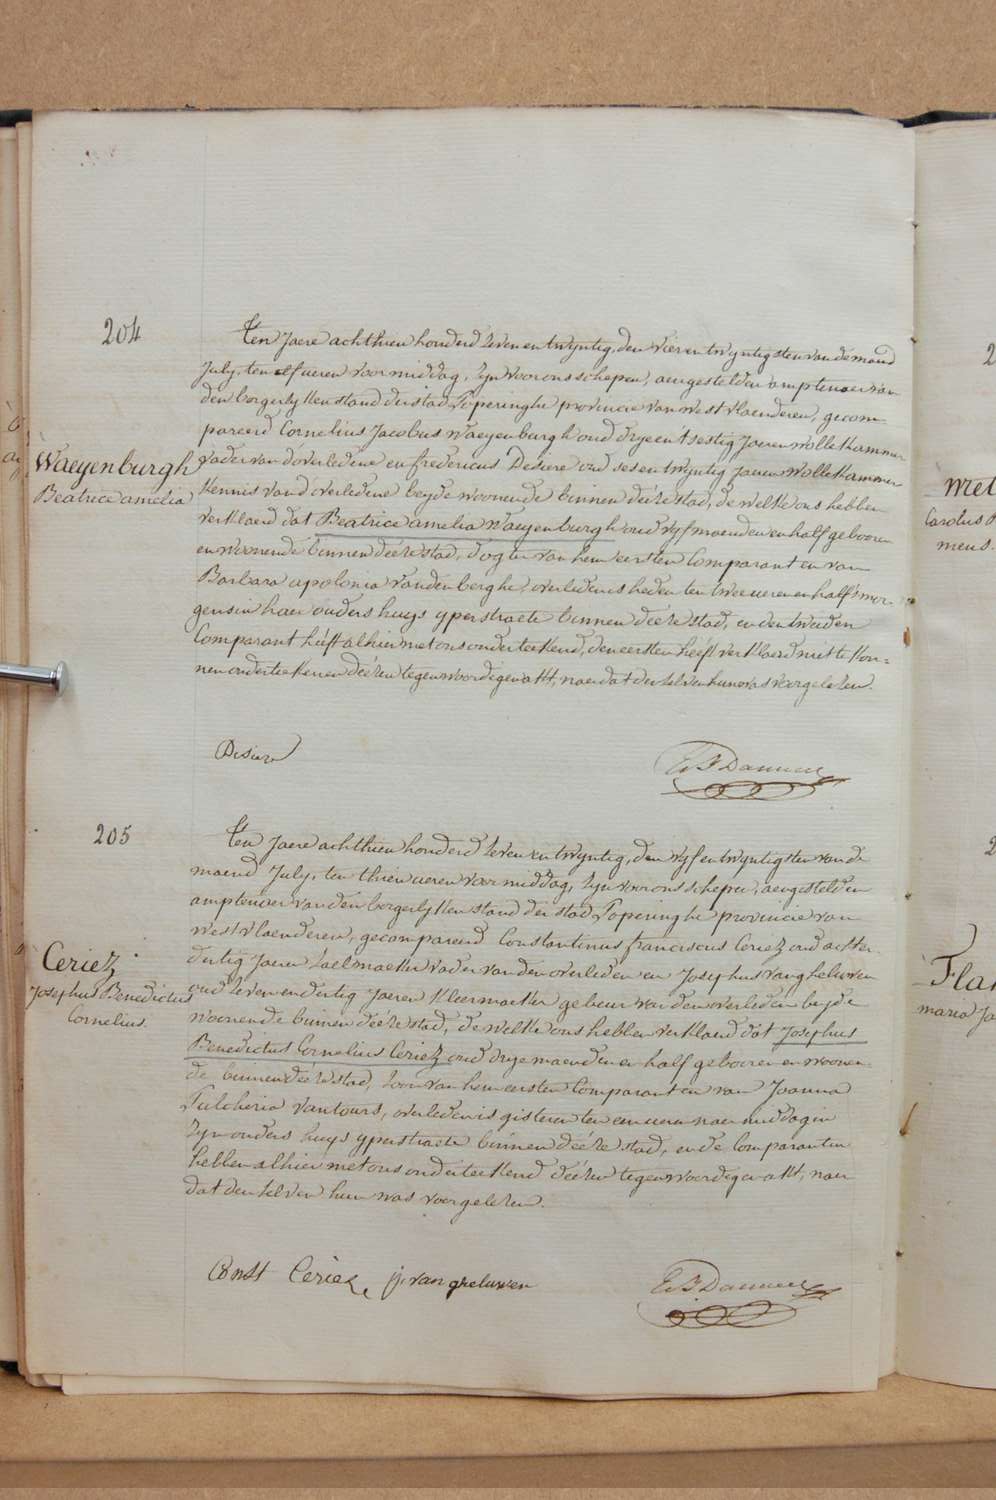 204
Ten Jaere achthien honderd seven en twyntig, den vier en twyntigsten van de maend
July, ten elf ueren voormiddag, zyn voor ons schepen, aengestelden amptenaer van
den borgerlyken stand der stad Poperinghe provincie van West vlaenderen, gecom-
pareerd Cornelius Jacobus Waeyenburgh oud drye en t'sestig Jaeren wolle kammer
Waeyenburgh
Beatrice amelia
vader van d'overledene en fredericus Desiere oud ses en twyntig Jaeren wolle kammer
kennis van d'overledene beyde woonende binnen deéze stad, de welke ons hebben
verklaerd dat Beatrice amelia Waeyenburgh oud vyf maenden en half gebooren
en woonende binnen deéze stad, dogter van hem eersten Comparant en van
Barbara apolonia vandenberghe, overleden is heden ten twee ueren en half s'mor-
gens in haer ouders huys yperstraete binnen deéze stad, en den tweeden
Comparant heéft alhier met ons onderteekend, den eersten heéft verklaerd niet te kon=
nen onderteekenen deézen tegenwoordigen akt, naer dat den zelven hun was voorgelezen.
Desiere
205
Ten Jaere achthien honderd zeven en twyntig, den vyf en twyntigsten van de
maend July, ten thien ueren voormiddag, zyn voor ons schepen, aengestelden
amptenaer van den borgerlyken stand der stad Poperinghe provincie van
West vlaenderen, gecompareerd Constantinus franciscus Ceriez oud acht en
Ceriez
Josephus Benedictus
Cornelius.
dertig Jaeren zaelmaeker vader van den overleden en Josephus vangheluwen
oud zeven en dertig Jaeren kleermaeker gebeur van den overleden beyde
woonende binnen deéze stad, de welke ons hebben verklaerd dat Josephus
Benedictus Cornelius Ceriez oud drye maenden en half gebooren en woonen-
de binnen deéze stad, zoon van hem eersten Comparant en van Joanna
Pulcheria vantours, overleden is gisteren ten een uer naermiddag in
zyn ouders huys yperstraete binnen deéze stad, en de Comparanten
hebben alhier met ons onderteekend deézen tegenwoordigen akt, naer
dat den zelven hun was voorgelezen.
Const Ceriez j. van gheluwen